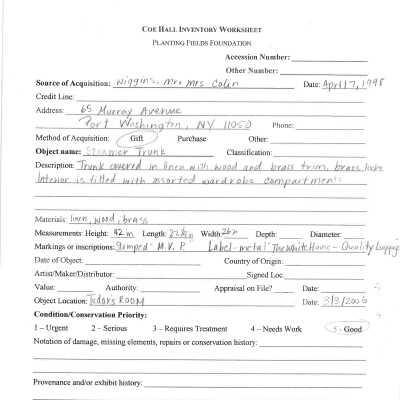 COE HALL INVENTORY WORKSHEET
PLANTING FIELDS FOUNDATION
Accession Number:
Other Number:
Source of Acquisition: Wiggins, Mr. Mrs Colin Date: April 7, 1998
Credit Line:
Address: 65 Murray Avenue
Port Washington, NY 11050 Phone:
Method of Acquisition: Gift Purchase Other:
Object name: Steamer Trunk Classification:
Description: Trunk covered in linen with wood and brass trim, brass locks
Interior is fitted with assorted wardrobe compartments
Materials: linen, wood, brass
Measurements: Height: 42in Length: 22½in Width: 26in Depth: Diameter:
Markings or inscriptions: Stamped M.V.P. Label-metal "The White House - Quality Luggage
Date of Object: Country of Origin:
Artist/Maker/Distributor: Signed Loc.
Value: Authority: Appraisal on File? Date:
Object Location: Tudors ROOM Date: 3/3/2006
Condition/Conservation Priority:
1 – Urgent 2 – Serious 3 – Requires Treatment 4 – Needs Work 5 - Good
Notation of damage, missing elements, repairs or conservation history:
Provenance and/or exhibit history: